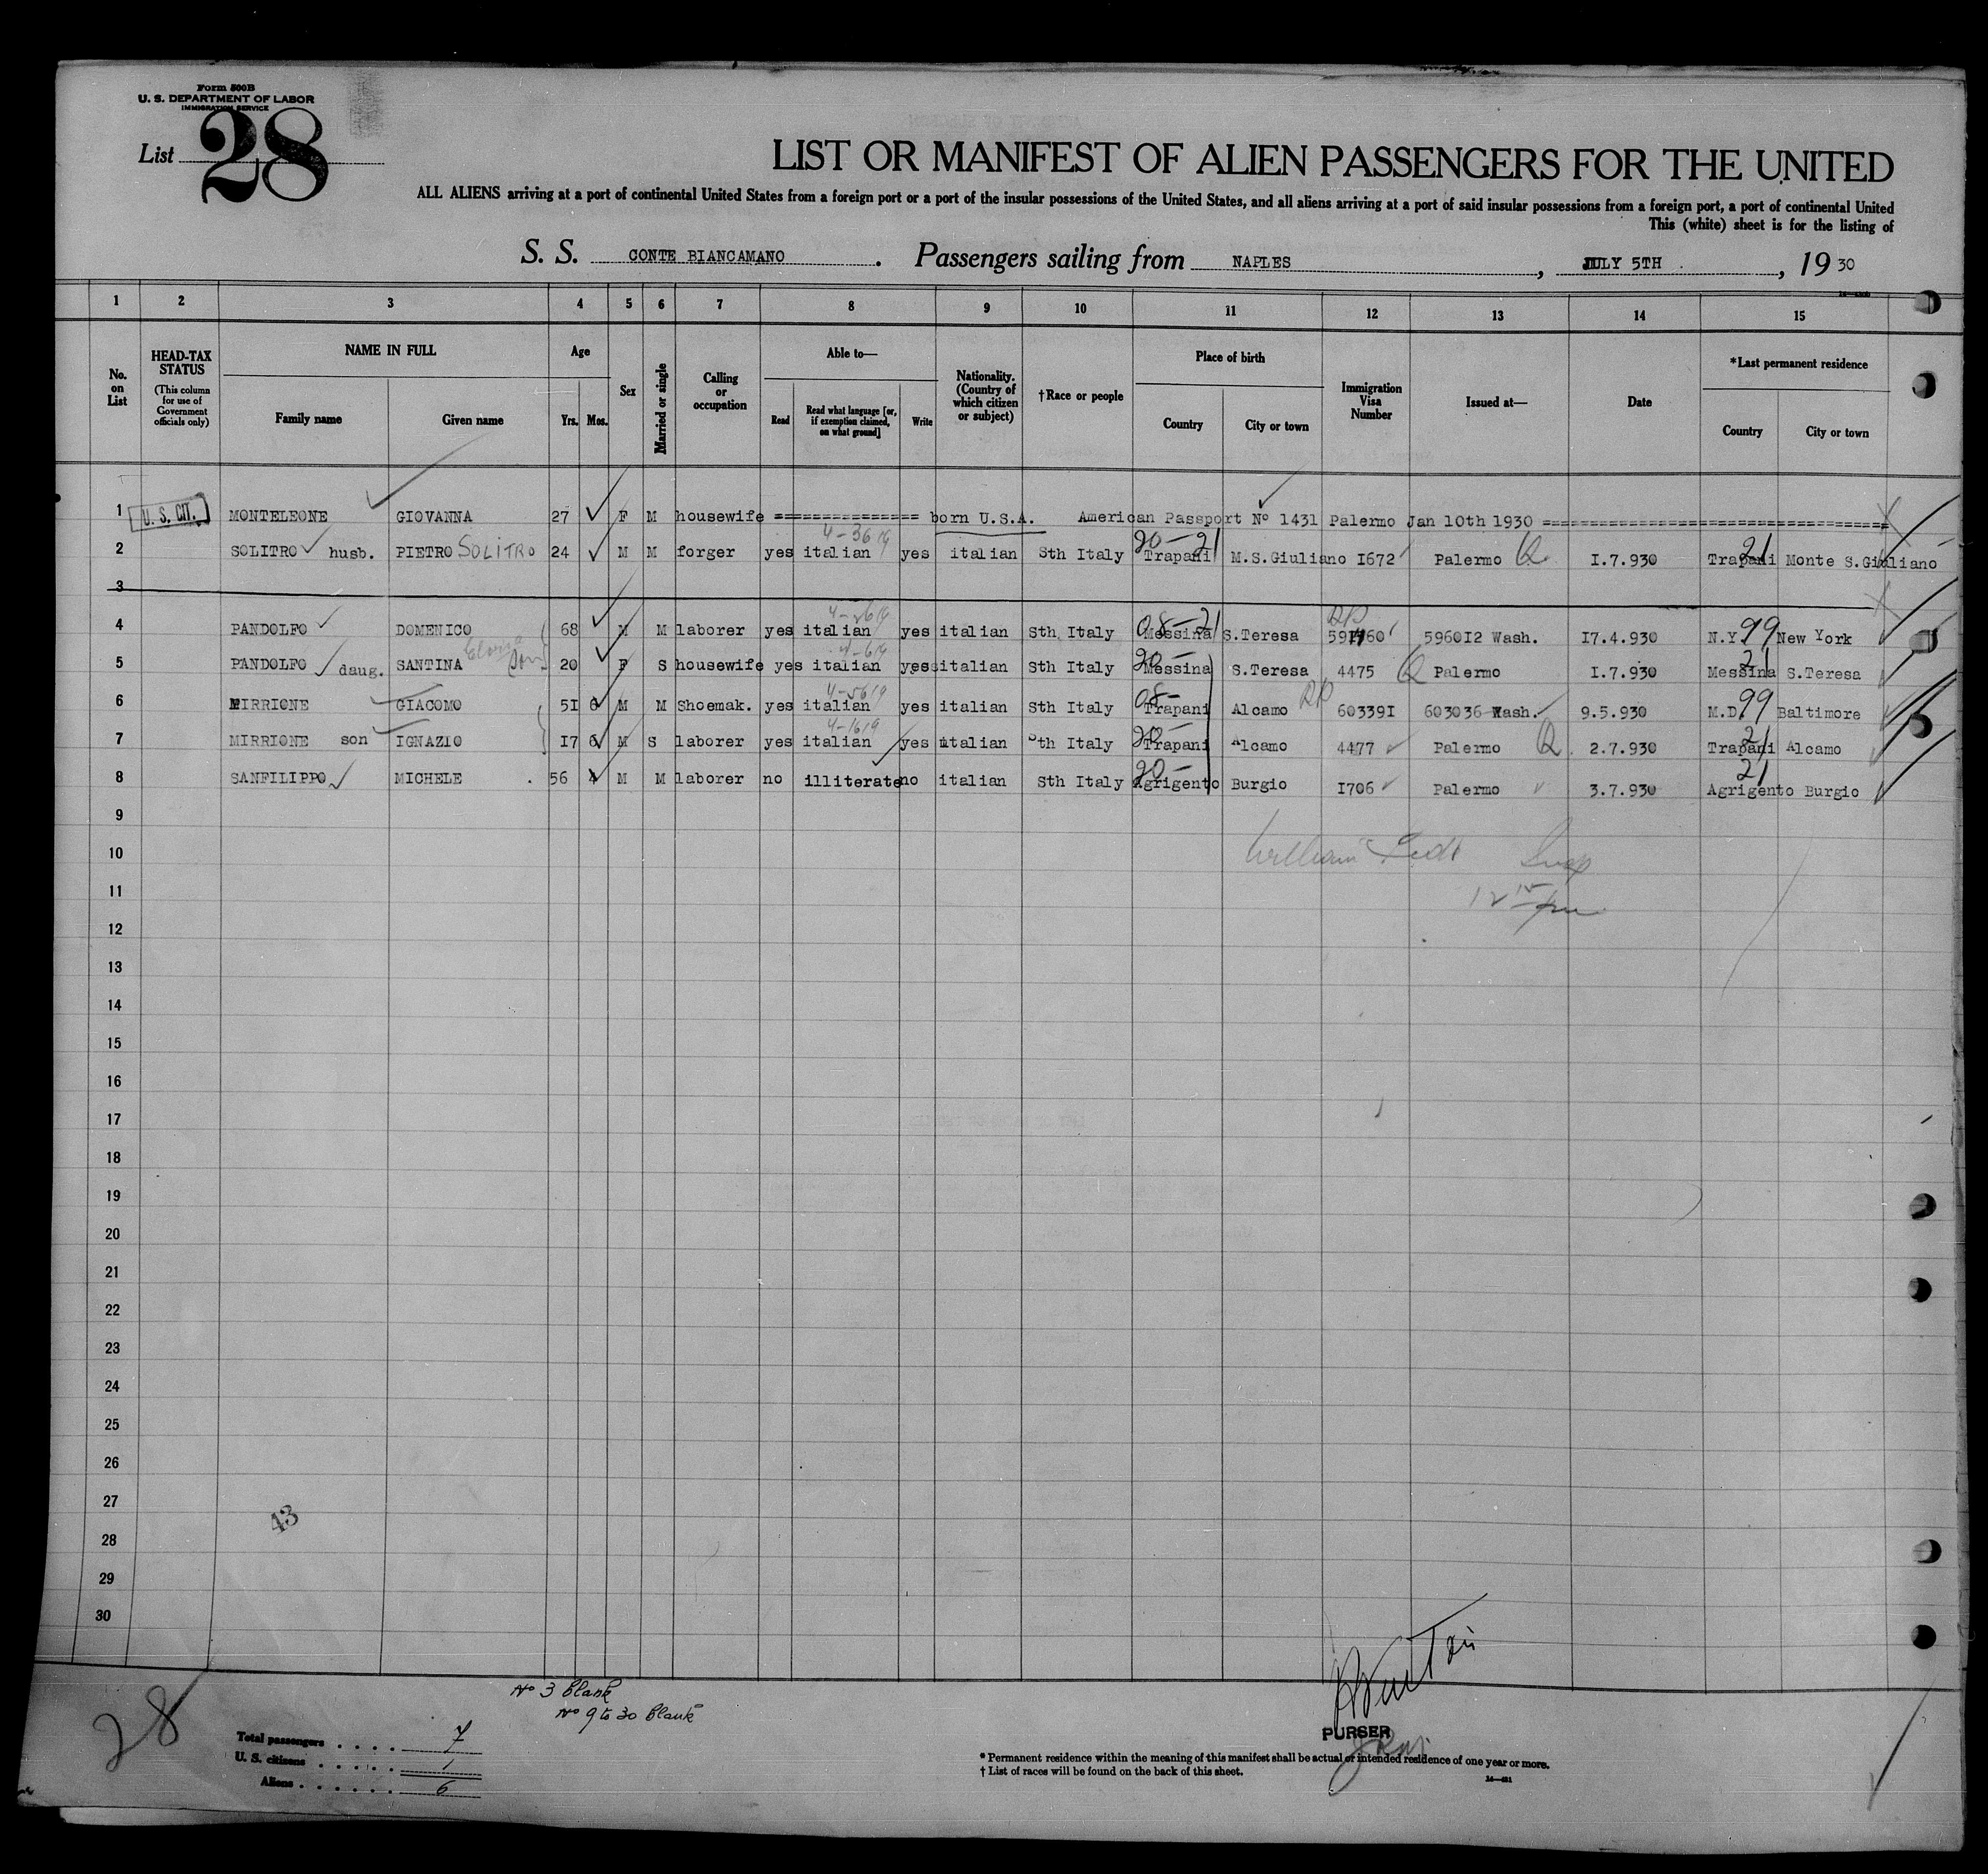 Form 500B
U. S. DEPARTMENT OF LABOR
IMMIGRATION SERVICE
List 28
LIST OR MANIFEST OF ALIEN PASSENGERS FOR THE UNITED
ALL ALIENS arriving at a port of continental United States from a foreign port or a port of the insular possessions of the United States, and all aliens arriving at a port of said insular possessions from a foreign port, a port of continental United
This (white) sheet is for the listing of
S. S. CONTE BIANCAMANO . Passengers sailing from NAPLES , JULY 5TH , 19 30
1 2 3 4 5 6 7 8 9 10 11 12 13 14 15
No. on List
HEAD-TAX STATUS (This column for use of Government officials only)
NAME IN FULL
Family name Given name
Age
Yrs. Mos.
Sex
Married or single
Calling or occupation
Able to—
Read Read what language [or, if exemption claimed, on what ground] Write
Nationality. (Country of which citizen or subject)
†Race or people
Place of birth
Country City or town
Immigration Visa Number
Issued at—
Date
*Last permanent residence
Country City or town
1 U. S. CIT. MONTELEONE GIOVANNA 27 F M housewife =============== born U.S.A. American Passport Nº 1431 Palermo Jan 10th 1930 ===================================
4-3619 20-21 21
2 SOLITRO husb. PIETRO SOLITRO 24 M M forger yes italian yes italian Sth Italy Trapani M.S.Giuliano I672 Palermo Q I.7.930 Trapani Monte S.Giuliano
3
08-21 RP 99
4 PANDOLFO DOMENICO 68 M M laborer yes italian yes italian Sth Italy Messina S.Teresa 5960I2 Wash. I7.4.930 N.Y. New York
4-619 20- 21
5 PANDOLFO daug. SANTINA 20 F S housewife yes italian yes italian Sth Italy Messina S.Teresa 4475 Q Palermo I.7.930 Messina S.Teresa
4-5619 08- RP 99
6 MIRRIONE GIACOMO 5I 6 M M Shoemak. yes italian yes italian Sth Italy Trapani Alcamo 60339I 603036 Wash. 9.5.930 M.D. Baltimore
4-1619 20- 21
7 MIRRIONE son IGNAZIO I7 6 M S laborer yes italian yes italian Sth Italy Trapani Alcamo 4477 Palermo Q 2.7.930 Trapani Alcamo
20- 21
8 SANFILIPPO MICHELE . 56 4 M M laborer no illiterate no italian Sth Italy Agrigento Burgio I706 Palermo 3.7.930 Agrigento Burgio
9
10 William Insp
11 12 15 pm
12
13
14
15
16
17
18
19
20
21
22
23
24
25
26
27
43
28
29
30
Nº 3 blank
Nº 9 to 30 blank
28
Total passengers . . . . 7
U. S. citizens . . . . . . 1
Aliens . . . . . . . 6
PURSER
* Permanent residence within the meaning of this manifest shall be actual or intended residence of one year or more.
† List of races will be found on the back of this sheet.